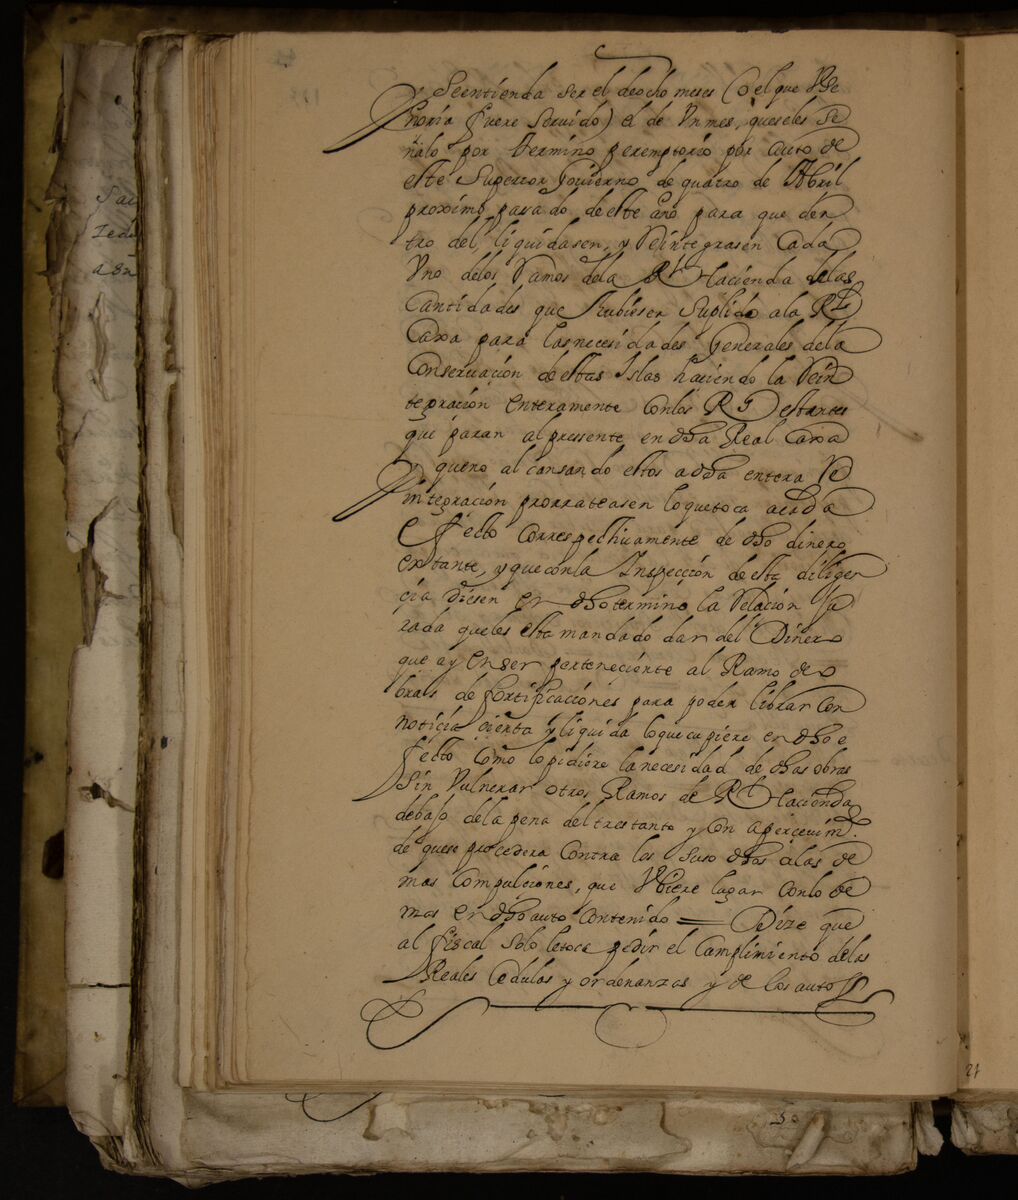 Seentienda ser el deocho meses (o el que Vse
ñoria fuere Seruido) el de Vnmes, queseles Se
ñalo por termino peremptorio por auto de
este Superior Gouierno de quatro de Abril
proximo pasado deeste año para que den
tro del, liquidasen, y Reintegrasen Cada
Vno delos Ramos dela Rl Hacienda delas
Cantidades que hubiesen Suplido ala Rl
Caxa para lasnecesidades Generales dela
Conseruacion de estas Islas haciendo la Rein
tegracion enteramente conlos Rs estantes
que paran alpressente en dha Real Caxa
y queno alcansando estos adha entera Re
integracion prorrateasen loquetoca acada
efecto correspectiuamente de dho dinero
extante, y queconla Inspeccion deesta diligen
cia diesen en dhotermino la Relacion Ju
rada queles esta mandado dar del Dinero
que ay enser perteneciente al Ramo de o
bras de fortificaciones para poder librar con
noticia cierta y liquida loquecupiere en dho e
fecto como lopidiere lanecesidad de dhas obras
Sin Vulnerar otros Ramos de Rl Hacienda
debajo dela pena del trestanto y con apercevimo
de quese procedera contra los suso dhos alas de
mas Compulciones, que Vbiere lugar conlo de
mas en dho auto contenido = Dize que
al fiscal solo letoca pedir el Cumplimiento delas
Reales Cedulas y ordenanzas y de los autos
21